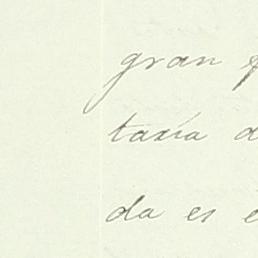 gran
taxía d
da es e